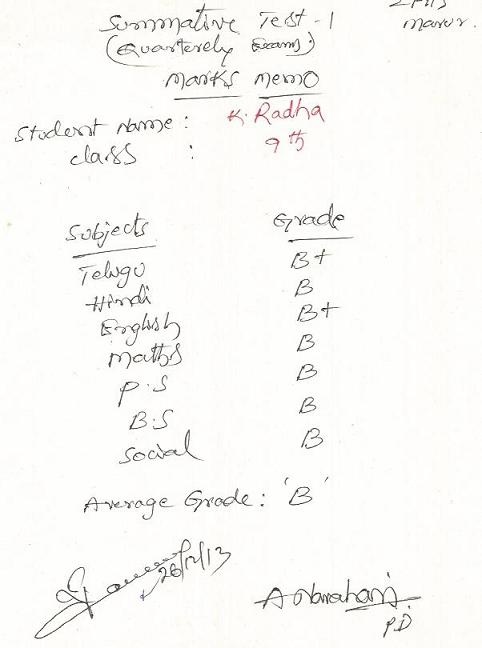 Summative Test - 1
(Quarterely Exams)
marur.
Marks Memo
Student Name : K. Radha
class : 9th
Subjects Grade
Telugu B+
Hindi B
English B+
Maths B
P.S B
B.S B
Social B
Average Grade : 'B'
26/12/13
P.D.